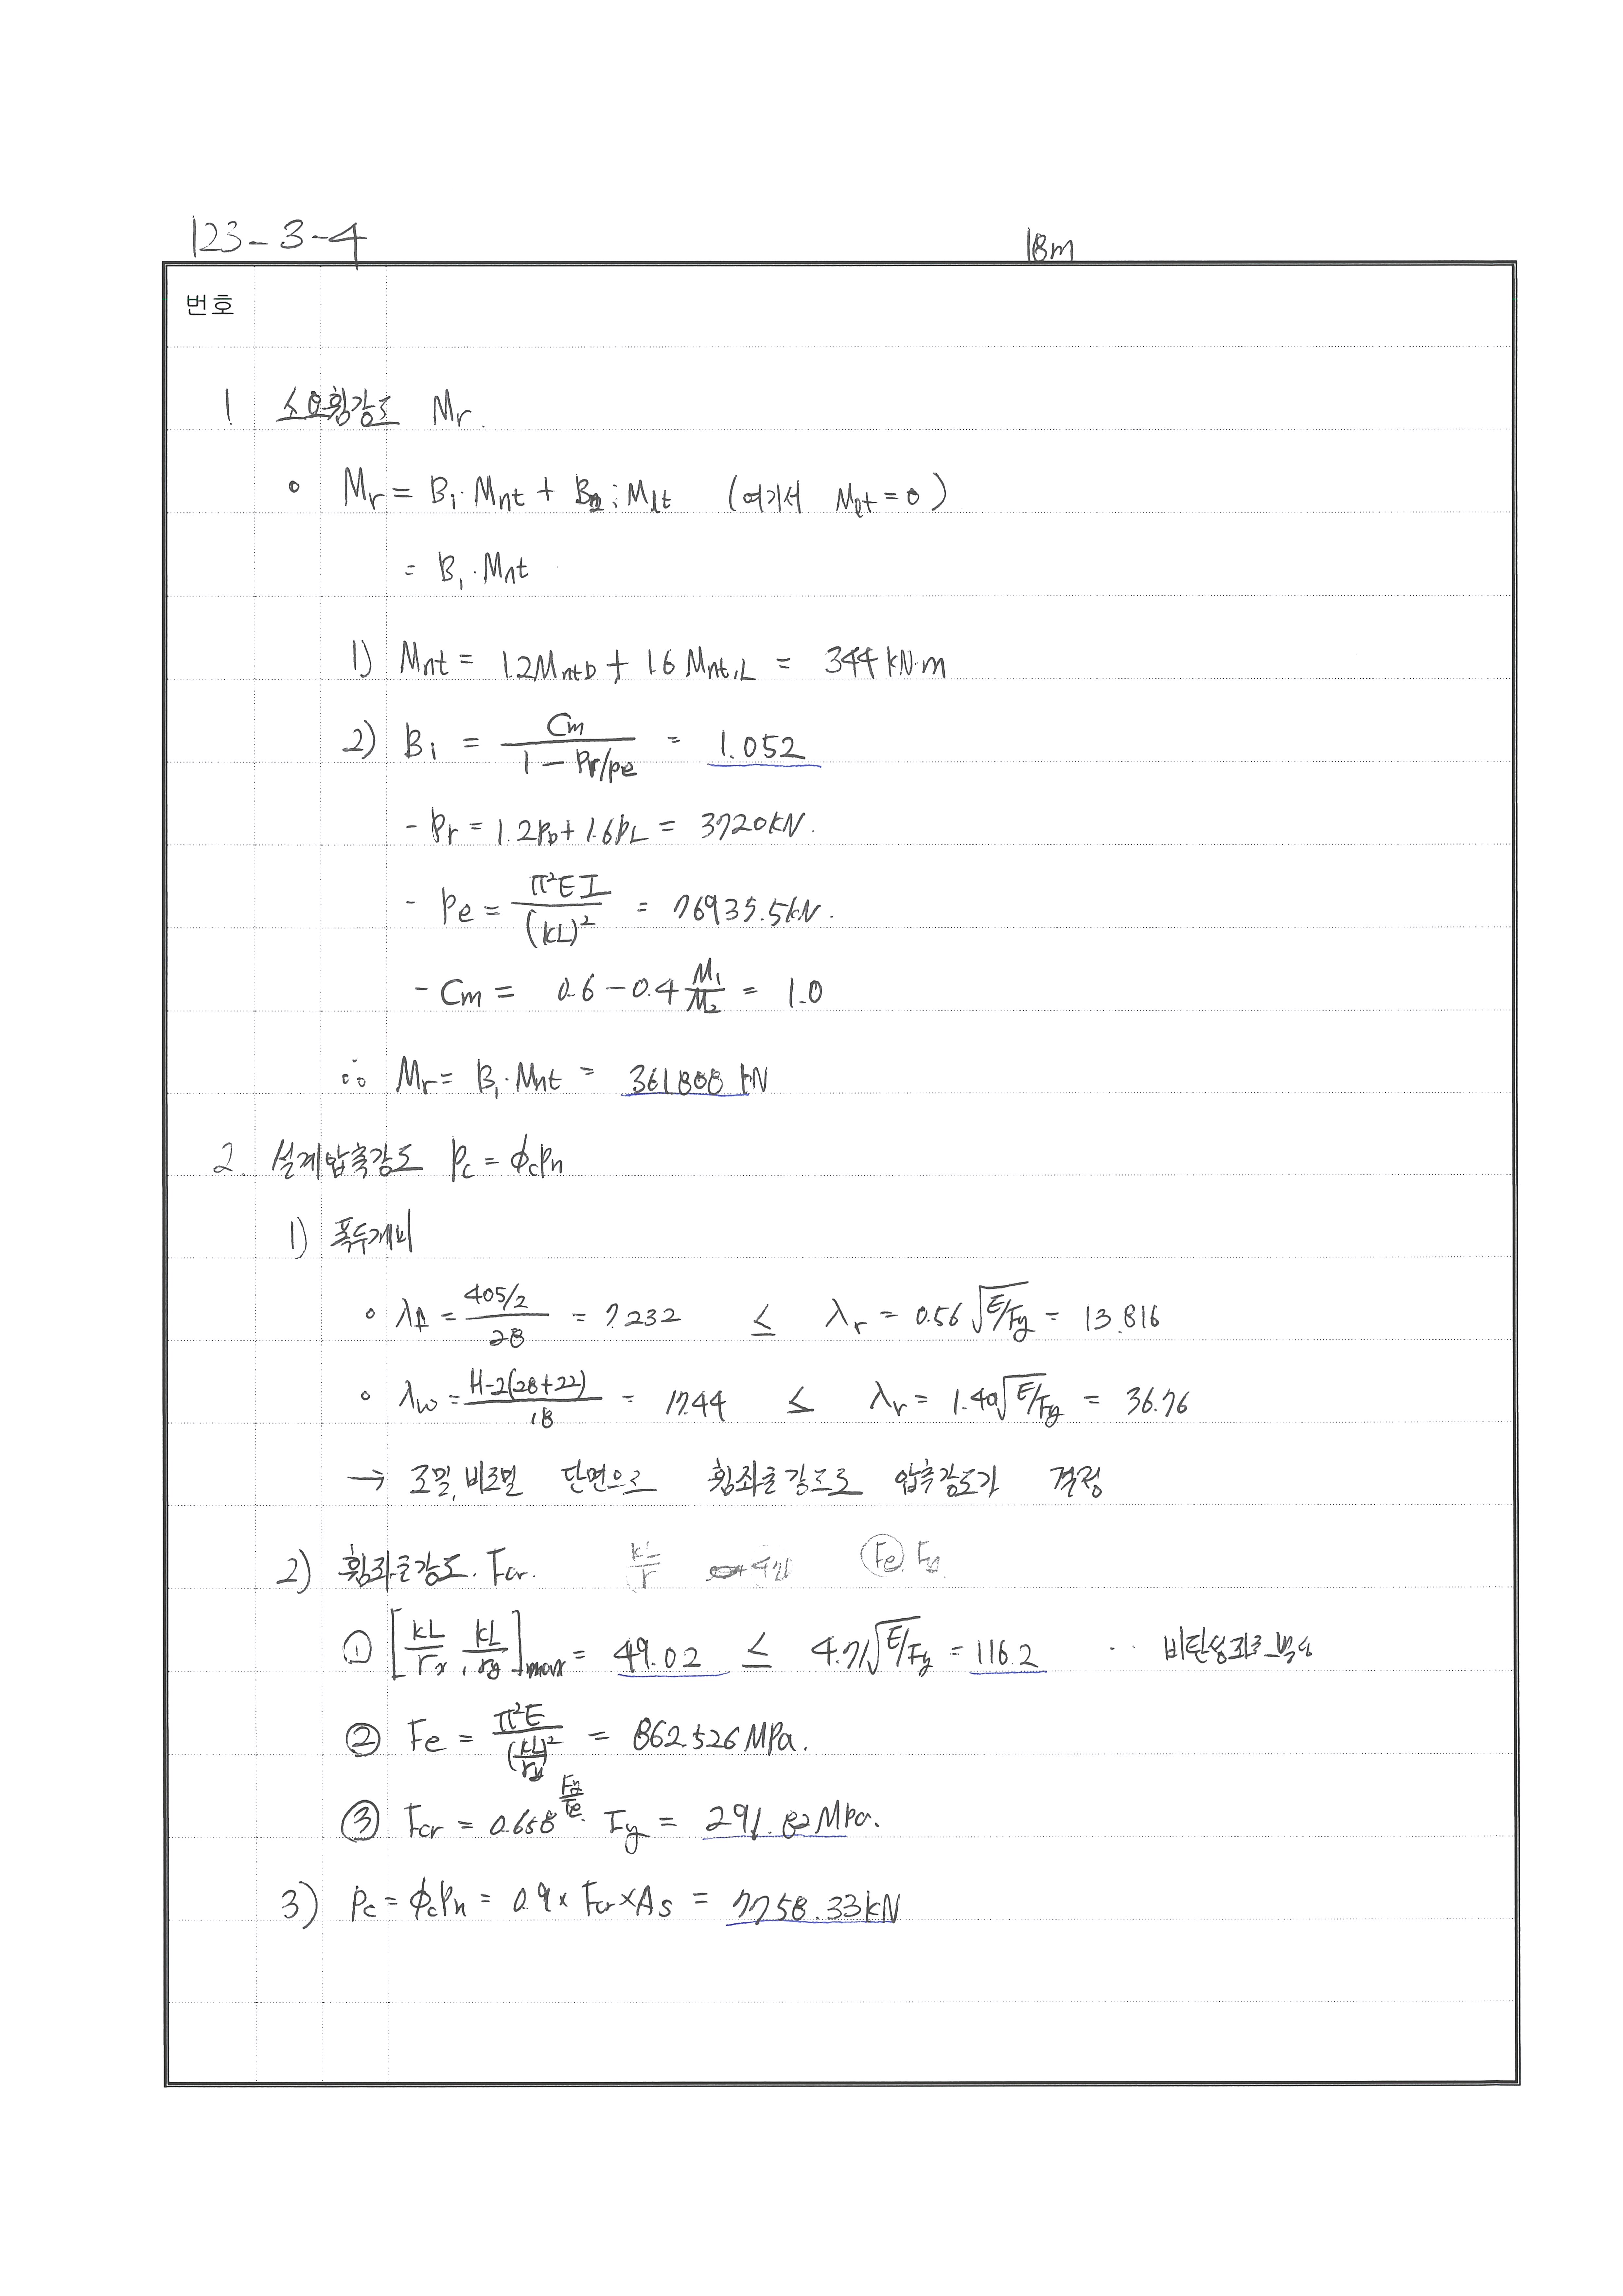 123-3-4
18m
번호
1 소요휨강도 Mr.
∘ Mr = B₁·Mnt + B₂·Mlt (여기서 Mlt = 0)
= B₁·Mnt
1) Mnt = 1.2MntD + 1.6 Mnt,L = 344 kN·m
2) B₁ = Cm / (1 - Pr/Pe) = 1.052
- Pr = 1.2PD + 1.6PL = 3720kN.
- Pe = π²EI / (kL)² = 76935.5kN.
- Cm = 0.6 - 0.4 M₁/M₂ = 1.0
∴ Mr = B₁·Mnt = 361.888 kN
2. 설계압축강도 Pc = ϕcPn
1) 폭두께비
∘ λf = (405/2) / 28 = 7.232 ≤ λr = 0.56√(E/Fy) = 13.816
∘ λw = (H-2(28+22)) / 18 = 17.44 ≤ λr = 1.49√(E/Fy) = 36.76
→ 조밀, 비조밀 단면으로 휨좌굴강도로 압축강도가 결정
2) 휨좌굴강도. Fcr. kL/r Fe Fy
① [kL/rx, kL/ry]max = 49.02 ≤ 4.71√(E/Fy) = 116.2 ∴ 비탄성좌굴
② Fe = π²E / (kL/ry)² = 862.526 MPa.
③ Fcr = 0.658^(Fy/Fe) · Fy = 291.82 MPa.
3) Pc = ϕcPn = 0.9 × Fcr × As = 7758.33 kN